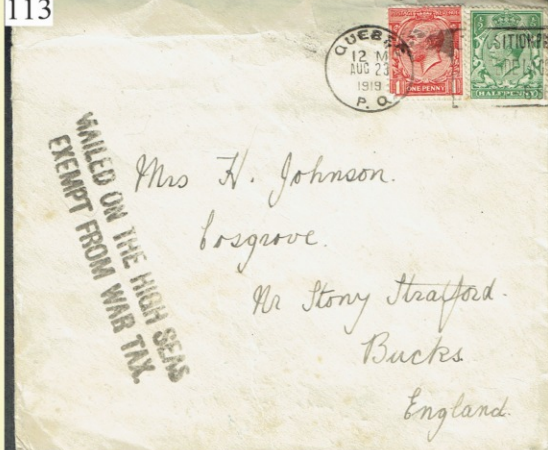 113
QUEBEC
12 M
AUG 23
1919
P. Q.
ONE PENNY
HALFPENNY
MAILED ON THE HIGH SEAS
EXEMPT FROM WAR TAX.
Mrs H. Johnson.
Cosgrove.
Nr Stony Stratford.
Bucks
England.